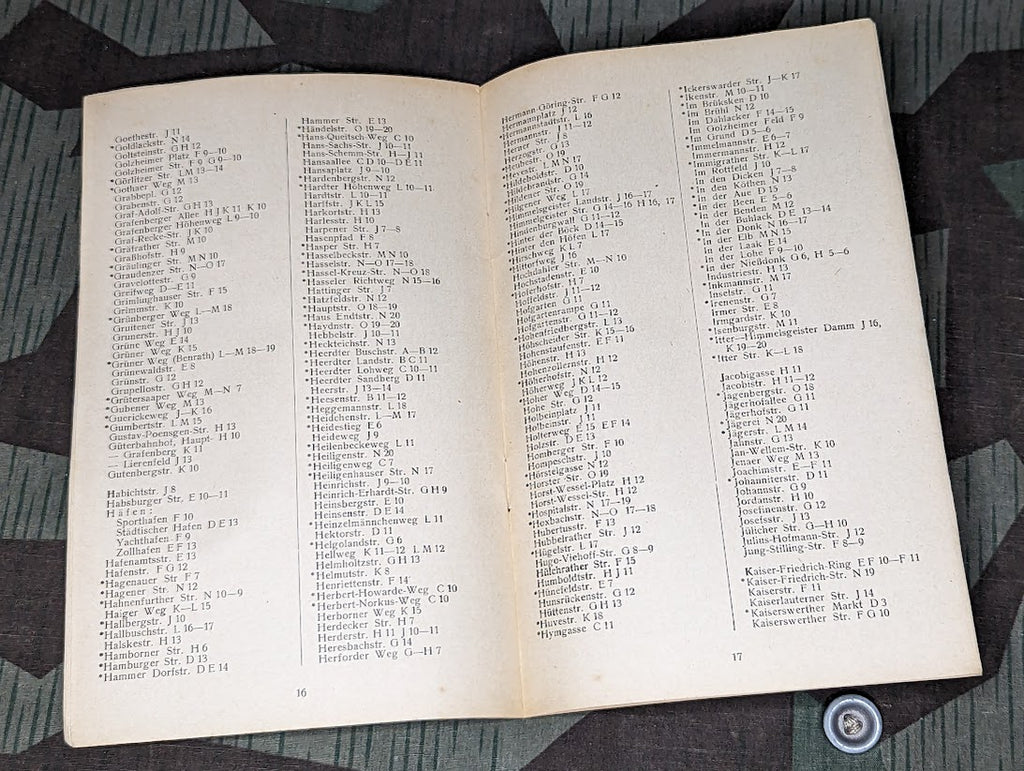 Goethestr. J 11
*Goldlackstr. N 14
Goltsteinstr. G H 12
Golzheimer Platz F 9—10
Golzheimer Str. F 9 G 9—10
*Görlitzer Str. L M 13—14
*Gothaer Weg M 13
Grabbepl. G 12
Grabenstr. G 12
Graf-Adolf-Str. G H 13
Grafenberger Allee H J K 11 K 10
Grafenberger Höhenweg L 9—10
Graf-Recke-Str. J K 10
*Gräfrather Str. M 10
Graßhofstr. H 9
*Gräulinger Str. M N 10
*Graudenzer Str. N—O 17
Gravelottestr. G 9
Greifweg D—E 11
Grimlinghauser Str. F 15
Grimmstr. K 10
*Grünberger Weg L—M 18
Gruitener Str. J 13
Grunerstr. H J 10
Grüne Weg E 14
Grüner Weg K 15
*Grüner Weg (Benrath) L—M 18—19
Grunewaldstr. E 8
Grünstr. G 12
Grupellostr. G H 12
*Grütersaaper Weg M—N 7
*Gubener Weg M 13
*Guerickeweg J—K 16
*Gumbertstr. L M 15
Gustav-Poensgen-Str. H 13
Güterbahnhof, Haupt- H 10
— Grafenberg K 11
— Lierenfeld J 13
Gutenbergstr. K 10
Habichtstr. J 8
Habsburger Str. E 10—11
Häfen:
Sporthafen F 10
Städtischer Hafen D E 13
Yachthafen F 9
Zollhafen E F 13
Hafenamtsstr. E 13
Hafenstr. F G 12
*Hagenauer Str. F 7
*Hagener Str. N 12
*Hahnenfurther Str. N 10—9
Haiger Weg K—L 15
*Hallbergstr. J 10
*Hallbuschstr. L 16—17
Halskestr. H 13
*Hamborner Str. H 6
*Hamburger Str. D 13
*Hammer Dorfstr. D E 14
Hammer Str. E 13
*Händelstr. O 19—20
*Hans-Queitsch-Weg C 10
Hans-Sachs-Str. J 10—11
Hans-Schemm-Str. H—J 11
Hansaallee C D 10—D E 11
Hansaplatz J 9—10
*Hardenbergstr. N 12
*Hardter Höhenweg L 10—11
Hardtstr. L 10—11
Harffstr. J K L 15
Harkortstr. H 13
Harlesstr. H 10
Harpener Str. J 7—8
Hasenpfad F 8
*Hasper Str. H 7
*Hasselbeckstr. M N 10
*Hasselstr. N—O 17—18
*Hassel-Kreuz-Str. N—O 18
*Hasseler Richtweg N 15—16
Hattinger Str. J 7
*Hatzfeldstr. N 12
*Hauptstr. O 18—19
*Haus Endtstr. N 20
*Haydnstr. O 19—20
Hebbelstr. J 10—11
*Heckteichstr. N 13
*Heerdter Buschstr. A—B 12
*Heerdter Landstr. B C 11
*Heerdter Lohweg C 10—11
*Heerdter Sandberg D 11
Heerstr. J 13—14
*Heesenstr. B 11—12
*Heggemannstr. L 18
*Heidchenstr. L—M 17
*Heidestieg E 6
Heideweg J 9
*Heilenbeckeweg L 11
*Heiligenstr. N 20
*Heiligenweg C 7
*Heiligenhauser Str. N 17
Heinrichstr. J 9—10
Heinrich-Erhardt-Str. G H 9
Heinsbergstr. E 10
Heinsenstr. D E 14
*Heinzelmännchenweg L 11
Hektorstr. D 11
*Helgolandstr. G 6
Hellweg K 11—12 L M 12
Helmholtzstr. G H 13
*Helmutstr. K 8
Henriettenstr. F 14
*Herbert-Howarde-Weg C 10
*Herbert-Norkus-Weg C 10
Herborner Weg K 15
Herdecker Str. H 7
Herderstr. H 11 J 10—11
Heresbachstr. G 14
Herforder Weg G—H 7
16
Hermann-Göring-Str. F G 12
*Hermannplatz J 12
*Hermannstadtstr. L 16
Hermannstr. J 11—12
Herner Str. J 8
Herzogstr. G 13
*Heubestr. O 19
*Hevestr. L M N 17
Hildeboldstr. D 10
Hildebrandtstr. G 14
*Hildener Str. O 19
*Hilgener Weg L 17
Himmelsgeister Landstr. J 16—17
Himmelgeister Str. G 14—16 H 16, 17
Hindenburgwall G 11—12
*Hinter der Böck D 14—15
*Hinter den Höfen L 17
*Hirschweg K L 7
*Hitforfweg J 16
*Hochdahler Str. M—N 10
Hochstadenstr. E 10
*Hoferhofstr. H 7
Hoffeldstr. J 11—12
Hofgarten G 11
Hofgartenrampe G 11
Hofgartenstr. G 11—12
*Hohenfriedbergstr. L 13
*Höhscheider Str. K 15—16
*Hohenstaufenstr. E F 11
Höhenstr. H 13
Hohenzollernstr. H 12
*Höherhofstr. N 12
Höherweg J K L 12
*Hoher Weg D 14—15
Hohe Str. G 12
Holbeinplatz J 11
Holbeinstr. J 11
*Holterweg E 15 E F 14
Holzstr. D E 13
Homberger Str. F 10
Hompeschstr. J 10
*Hörsteigasse N 12
*Horster Str. O 19
Horst-Wessel-Platz H 12
Horst-Wessel-Str. H 12
*Hospitalstr. N 17—19
*Hoxbachstr. N—O 17—18
Hubertusstr. F 13
Hubbelrather Str. J 12
*Hügelstr. L 17
Hugo-Viehoff-Str. G 8—9
Hülchrather Str. F 15
Humboldtstr. H J 11
*Hünefeldstr. E 7
Hunsrückenstr. G 12
Hüttenstr. G H 13
*Huvestr. K 18
*Hymgasse C 11
*Ickerswarder Str. J—K 17
*Ikenstr. M 10—11
*Im Brüksken D 10
*Im Brühl N 12
Im Dahlacker F 14—15
Im Golzheimer Feld F 9
*Im Grund D 5—6
*Immelmannstr. E 6—7
Immermannstr. H 12
*Immigrather Str. K—L 17
Im Rottfeld J 10
*In den Dicken J 7—8
*In den Köthen N 13
*In der Aue D 15
*In der Been E 5—6
*In der Benden M 12
*In der Buhlack D E 13—14
*In der Donk N 16—17
*In der Elb M N 15
*In der Laak E 14
*In der Lohe F 9—10
*In der Nießdonk G 6, H 5—6
Industriestr. H 13
*Inkmannstr. M 17
Inselstr. G 11
*Irenenstr. G 7
Irmer Str. E 8
Irmgardstr. K 10
*Isenburgstr. M 11
*Itter—Himmelsgeister Damm J 16,
K 19—20
*Itter Str. K—L 18
Jacobigasse H 11
Jacobistr. H 11—12
*Jagenbergstr. O 18
Jägerhofallee G 11
Jägerhofstr. G 11
*Jägerei N 20
*Jägerstr. L M 14
Jahnstr. G 13
Jan-Wellem-Str. K 10
Jenaer Weg M 13
Joachimstr. E—F 11
*Johanniterstr. D 11
Johannstr. G 9
Jordanstr. H 10
Josefinenstr. G 12
Josefsstr. J 13
Jülicher Str. G—H 10
Julius-Hofmann-Str. J 12
Jung-Stilling-Str. F 8—9
Kaiser-Friedrich-Ring E F 10—F 11
*Kaiser-Friedrich-Str. N 19
Kaiserstr. F 11
Kaiserlauterner Str. J 14
*Kaiserswerther Markt D 3
Kaiserswerther Str. F G 10
17